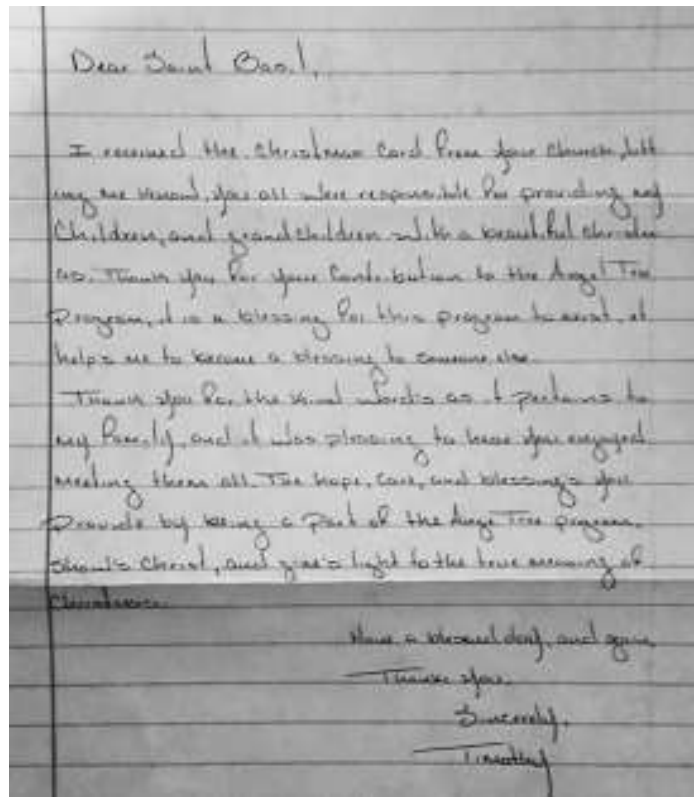 Dear Saint Basil,
I received the Christmas Card from your church, lett
ing me know, you all were responsible for providing my
Children, and grandchildren with a beautiful christm
as. Thank you for your Contribution to the Angel Tree
Program, it is a blessing for this program to exist, it
helps me to become a blessing to someone else.
Thank you for the kind words as it pertains to
my family, and it was pleasing to hear you enjoyed
meeting them all. The hope, care, and blessing's you
Provide by being a Part of the Angel Tree program,
show's Christ, and give's light to the true meaning of
Christmas.
Have a blessed day, and again,
Thank you.
Sincerely,
Timothy